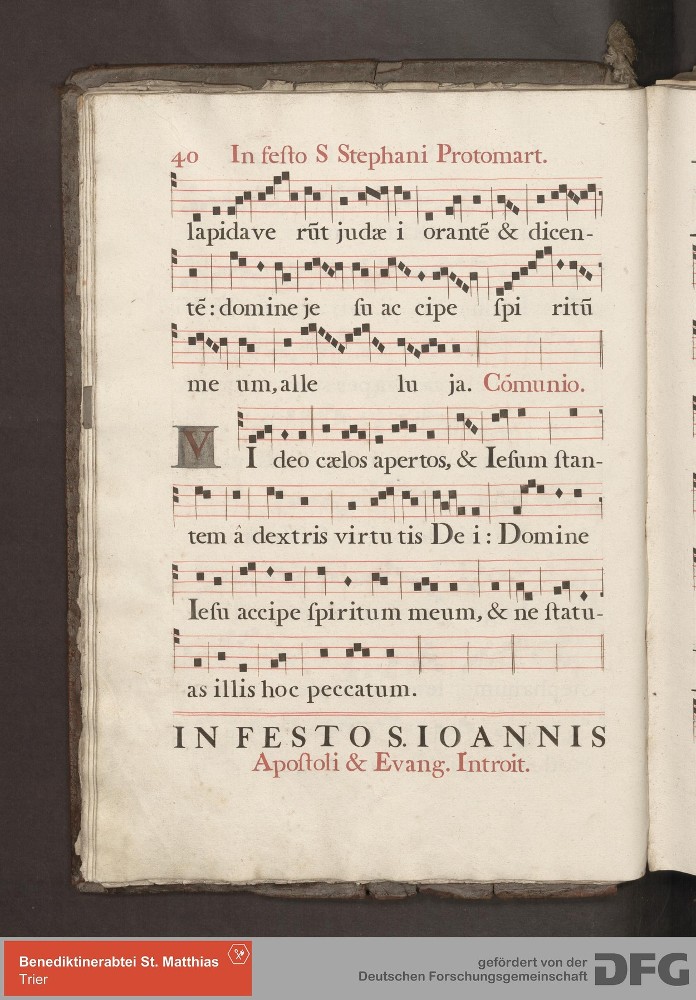 40 In festo S Stephani Protomart.
lapidave rūt judæ i orantē & dicen-
tē: domine je su ac cipe spi ritū
me um, alle lu ja. Cōmunio.
VI deo cælos apertos, & Iesum stan-
tem â dextris virtu tis De i: Domine
Iesu accipe spiritum meum, & ne statu-
as illis hoc peccatum.
IN FESTO S. IOANNIS
Apostoli & Evang. Introit.
Benediktinerabtei St. Matthias
Trier
gefördert von der
Deutschen Forschungsgemeinschaft
DFG